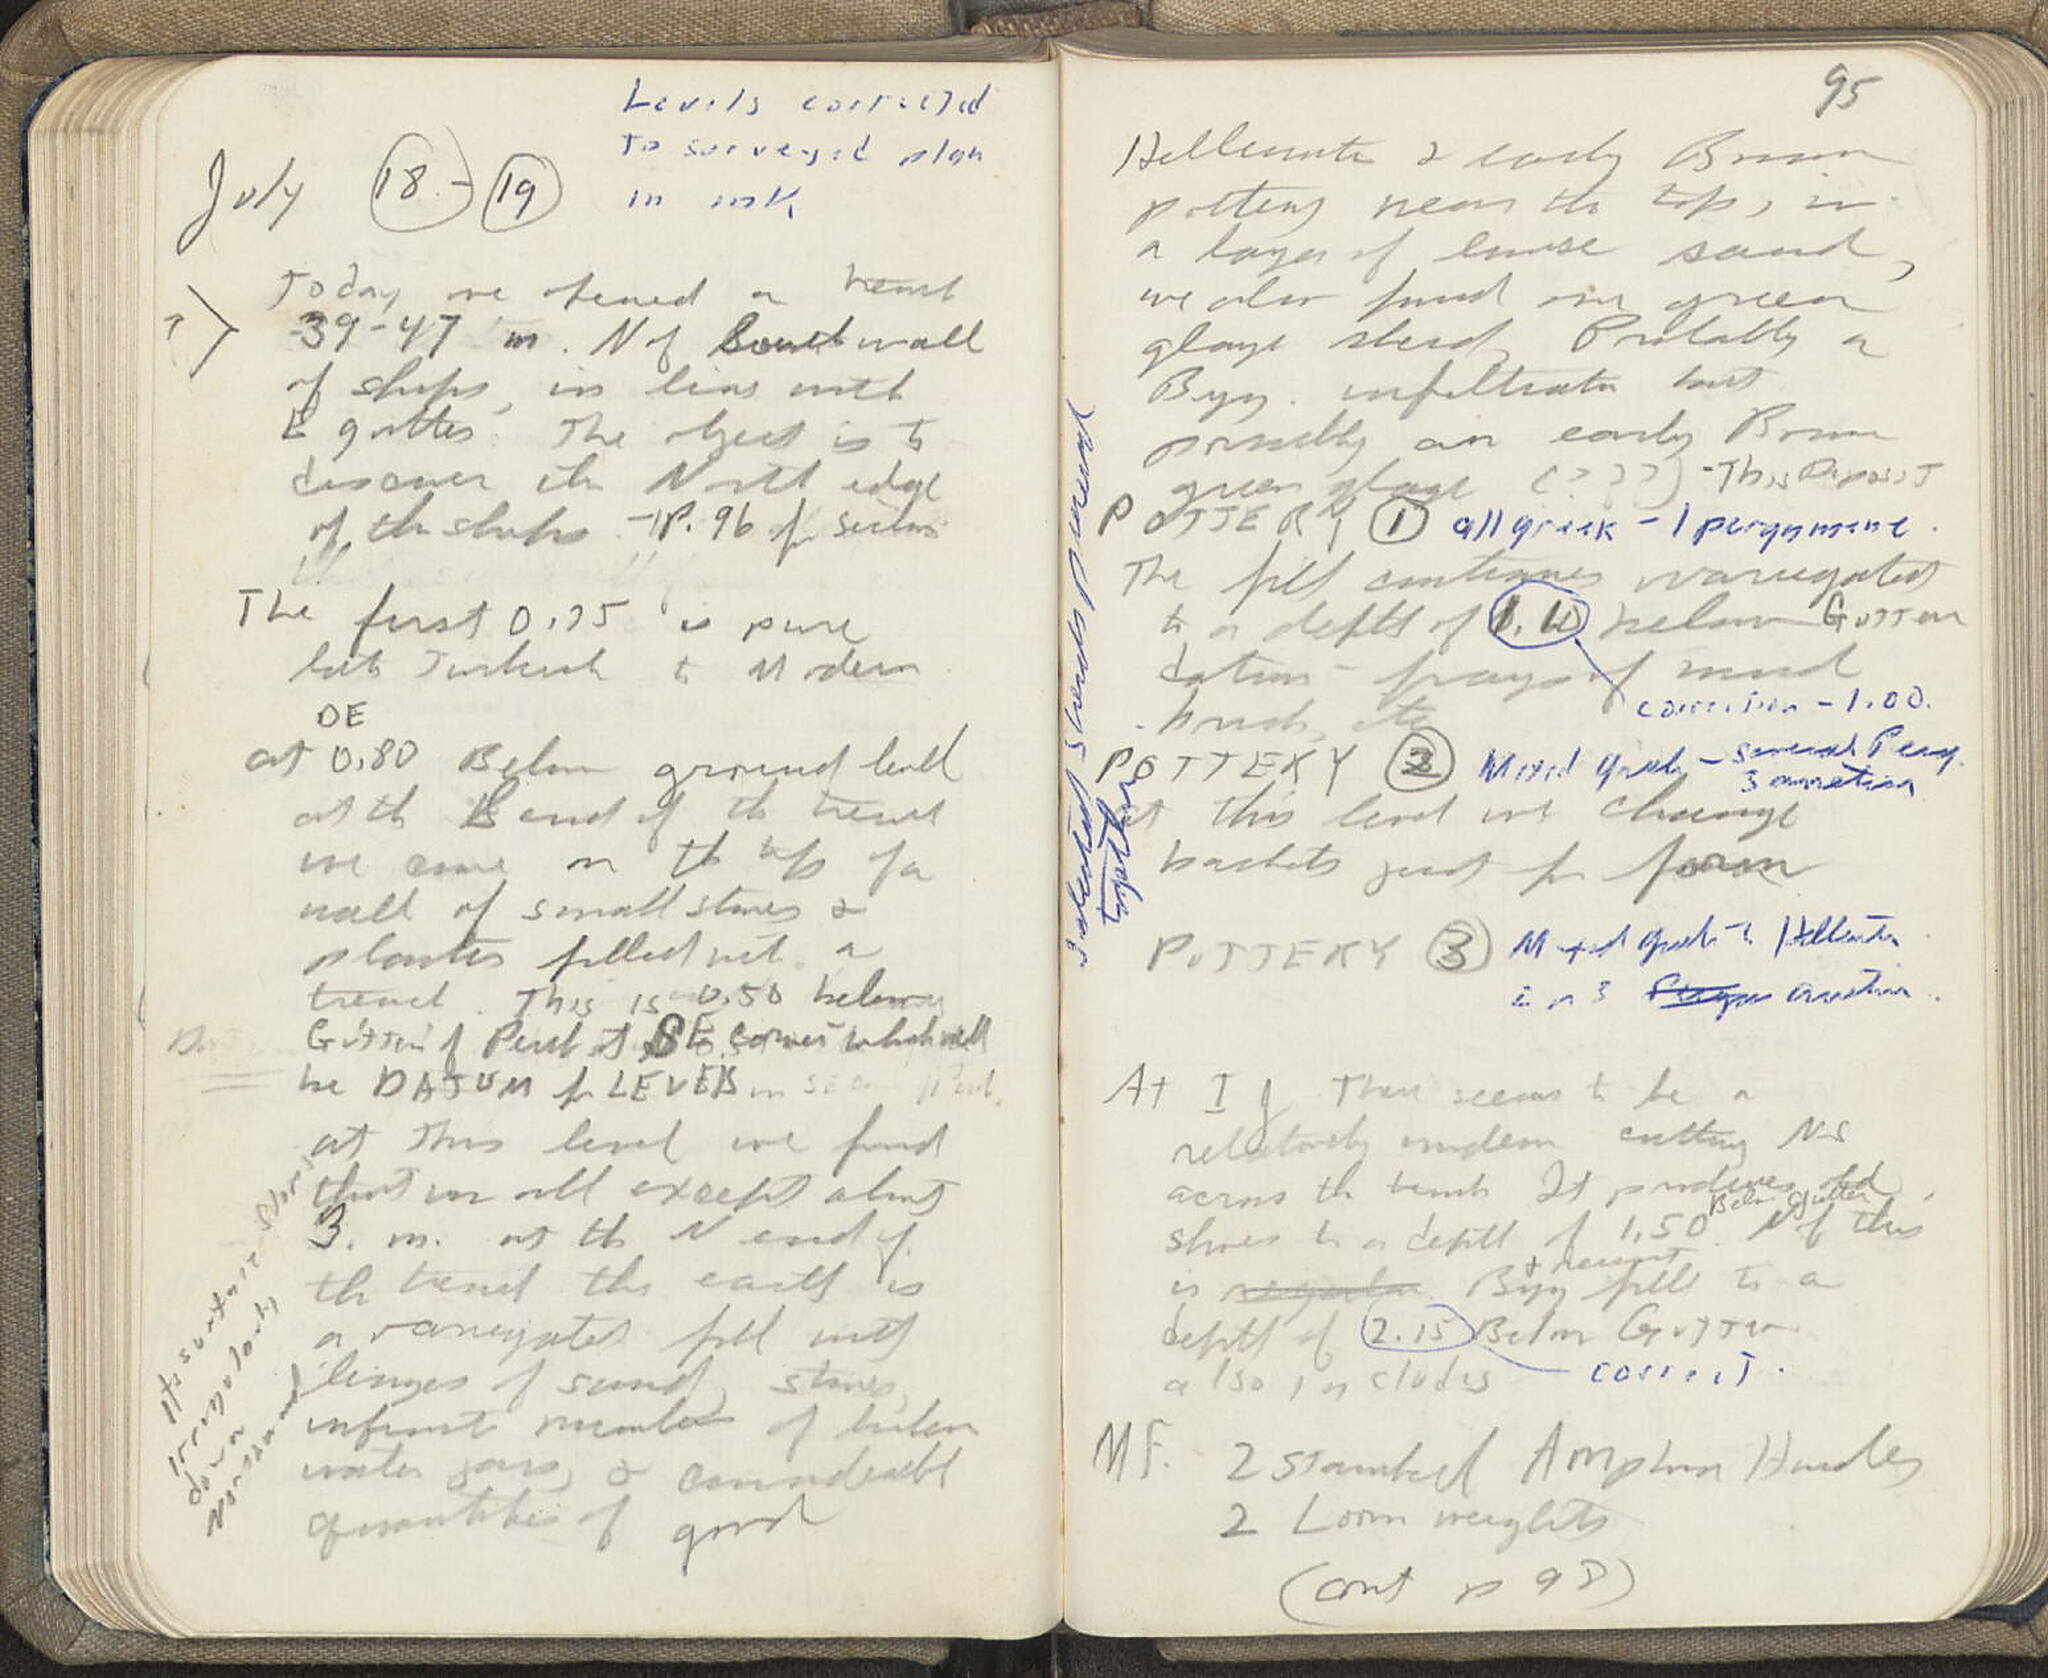 Levels corrected
to surveyed plan
in ink
July 18 - 19
Today we opened a trench
? > 39-47 m. N of South wall
of shops, in line with
E gutter. The object is to
discover the North edge
of the shops - P. 96 for section
The first 0.75 is pure
late Turkish to Modern
DE
at 0.80 Below ground level
at the end of the trench
we came on the top of a
wall of small stones &
plaster filled with a
trench. This is 0.50 below
Gutter of at SE corner which will
be DATUM for LEVELS in
at this level we find
that in all except about
3. m. at the N end of
the trench the earth is
a variegated fill with
lenses of sand, stones,
infinite number of broken
water jars, & considerable
quantities of good
Its surface slopes
irregularly
down
Northward
95
Hellenistic & early Roman
pottery near the top, in
a layer of loose sand,
we also found one green
glaze sherd. Probably a
Byz. infiltration but
possibly an early Roman
green glaze (???) - This Deposit
POTTERY 1 all greek - 1 pergamene.
The fill continues variegated
to a depth of below Gutter
datum - frags of mud
brick, etc
correction - 1.00.
POTTERY 2 Mixed greek - several Perg.
3 arretine
at this level we change
baskets just for form
POTTERY 3 Mixed greek to Hellenistic
2 or 3 arretine.
selected sherds preserved
At I g There seems to be a
relatively modern cutting N-S
across the trench. It produces old
Below Gutter
stones to a depth of 1.50. N of this
& recent
is regular Byz fill to a
depth of 2.15 Below Gutter
also includes correct.
MF. 2 Stamped Amphora Handles
2 Loom weights
(cont p 98)